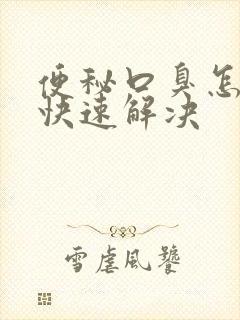 便秘口臭怎
快速解决
雪虐风饕